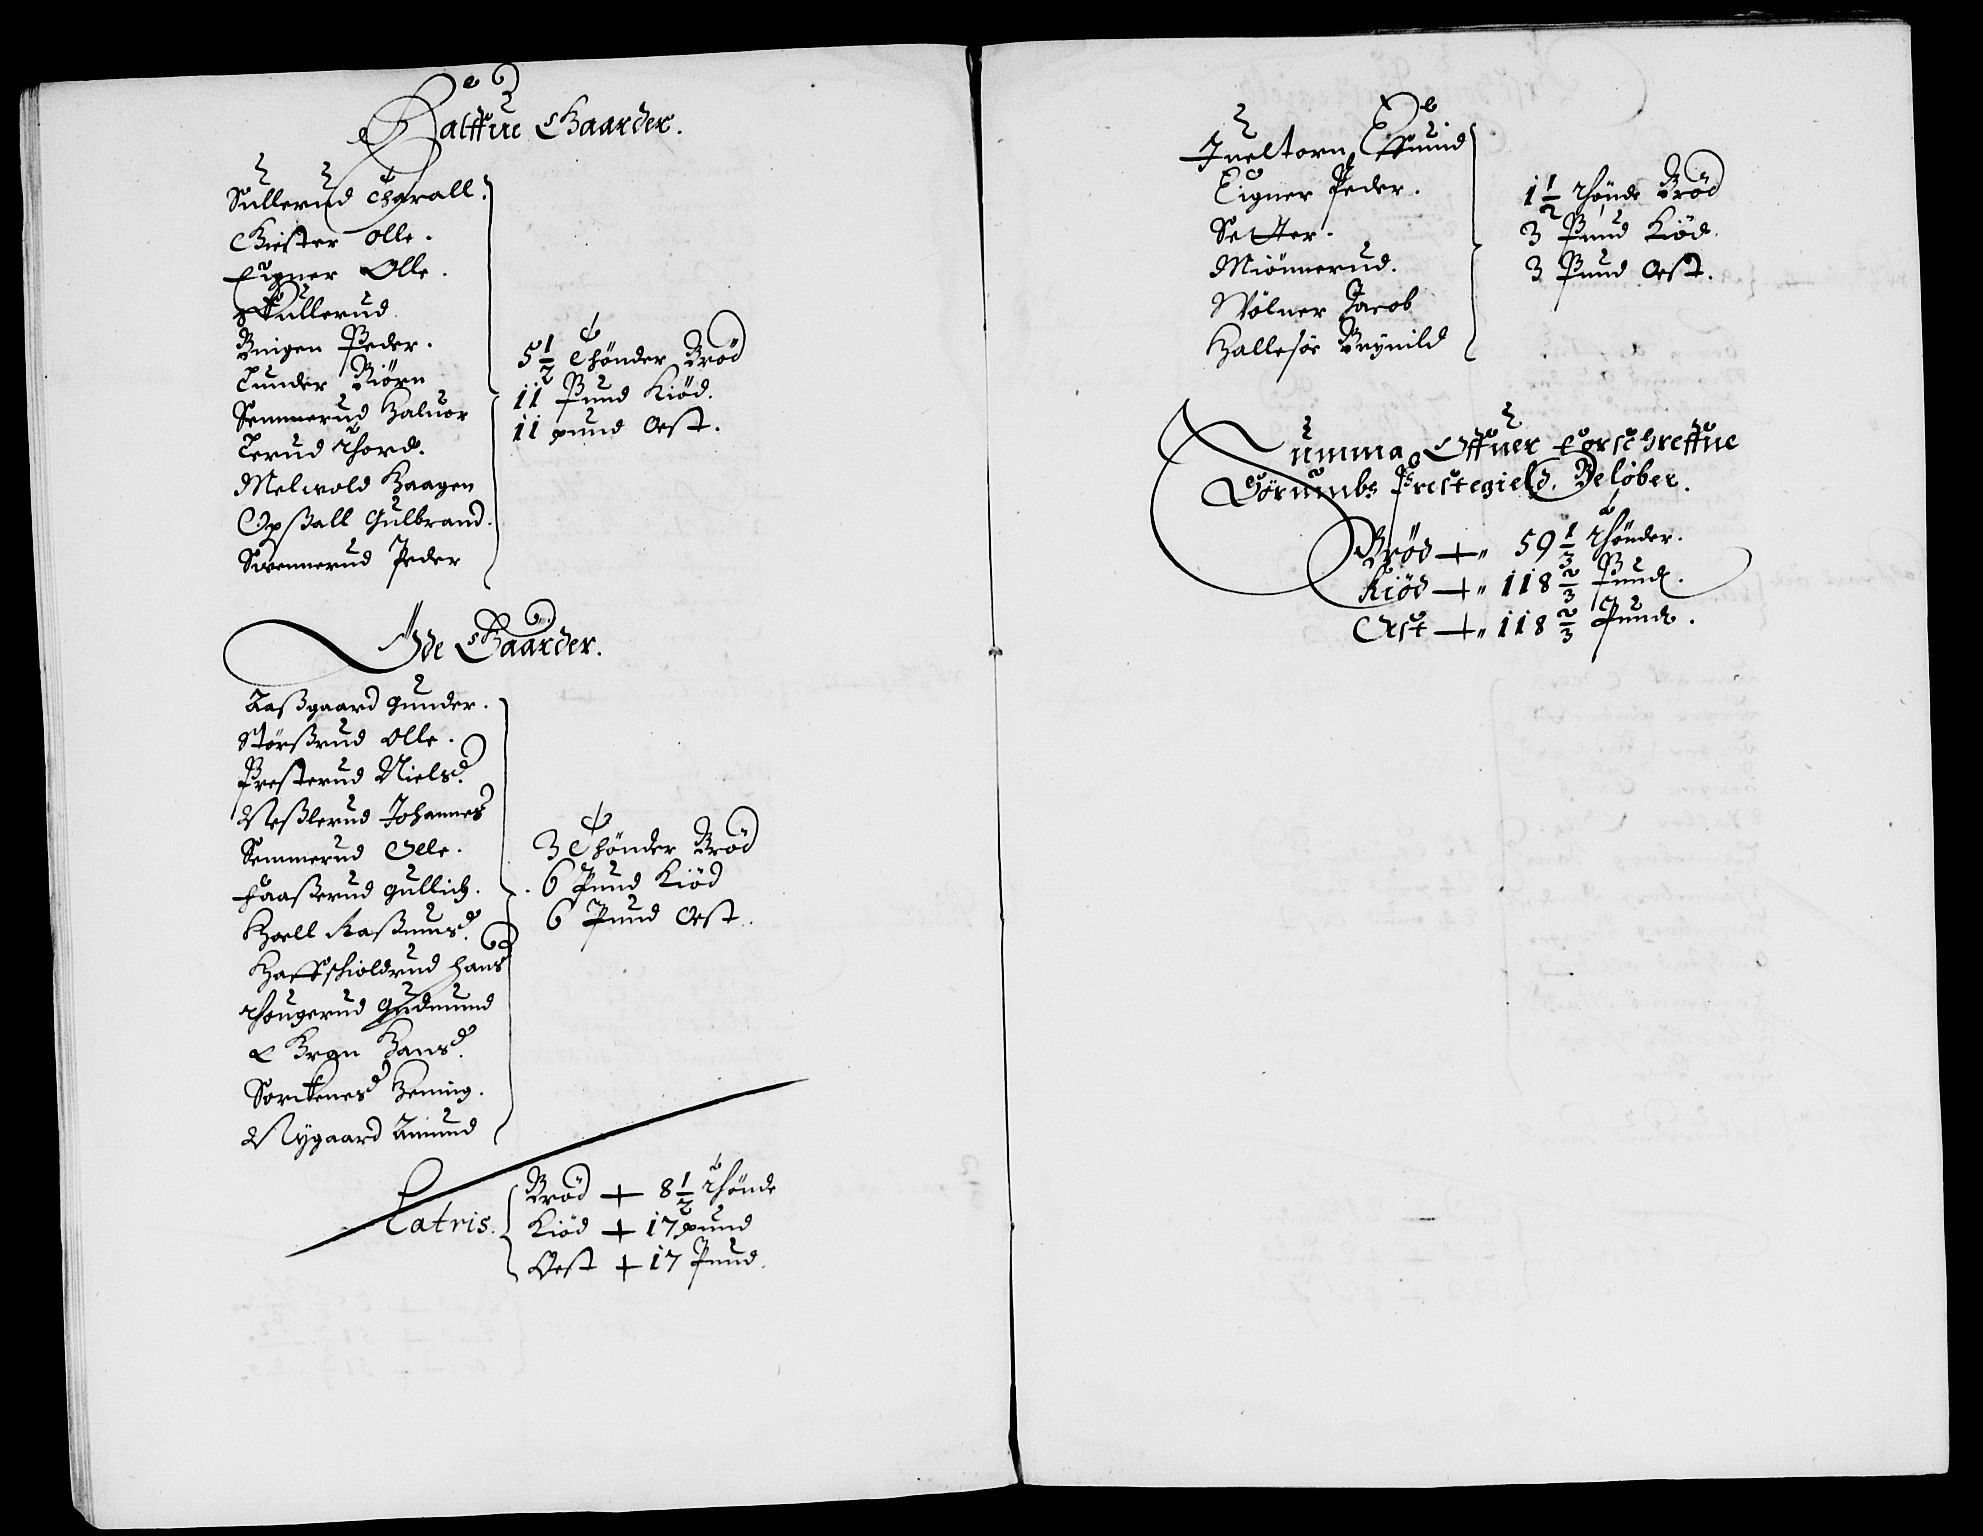 Halffue Gaarder.
Sullerud Tharall.
Giester Olle.
Eigner Olle.
Skullerud.
Bnigen Peder.
Tunder Biörn
Semmerud Haluor
Terud Thord.
Melwold Haagen
Opßall Gulbrand.
Swennerud Peder
5 1/2 Thönder Bröd
11 Pund Kiöd.
11 pund Ost.
Öde Gaarder.
Aaßgaard Gunder.
Störßrud Olle.
Presterud Niels.
Neßlerud Johannes
Semmerud Olle.
Haaßerud Gullich.
Hoell Raßmus.
Haffskioldrud Hans
Thougerud Gudmund
Krogn Hans.
Sortenes Heming.
Nygaard Amund
3 Thönder Bröd
6 Pund Kiöd
6 Pund Ost.
Latris.
Bröd + 8 1/2 Thönde
Kiöd + 17 pund
Ost + 17 Pund.
Jueltorn Effuind
Eigner Peder.
Setter.
Miönnerud.
Mölner Jacob
Hallesöe Brynild
1 1/2 Thönde Bröd
3 Pund Kiöd.
3 Pund Ost.
Summa Offuer Forschreffue
Sörumbs Prestegield. Beløber.
Bröd + 59 1/3 Thönder.
Kiöd + 118 2/3 Pund.
Ost + 118 2/3 Pund.